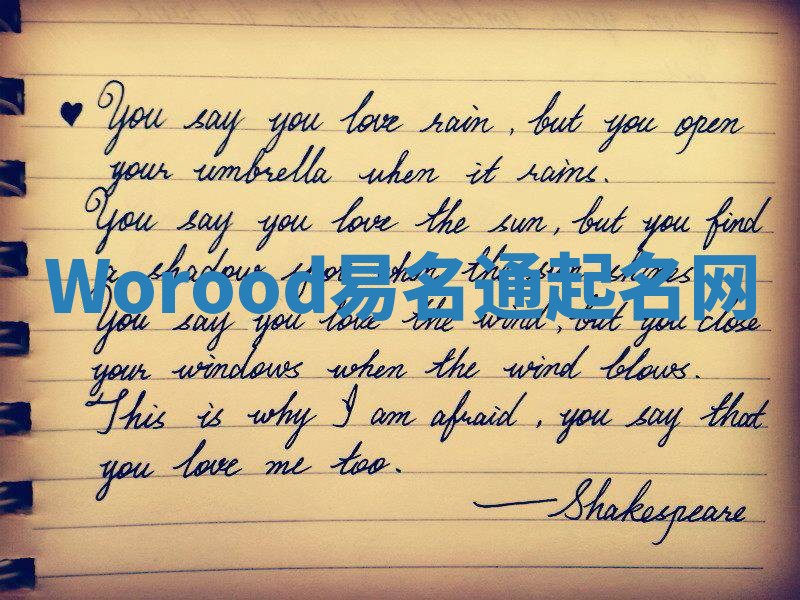 ♥ You say you love rain, but you open
your umbrella when it rains.
You say you love the sun, but you find
a shadow spot when the sun shines.
Worood易名通起名网
You say you love the wind, but you close
your windows when the wind blows.
This is why I am afraid, you say that
you love me too.
—Shakespeare